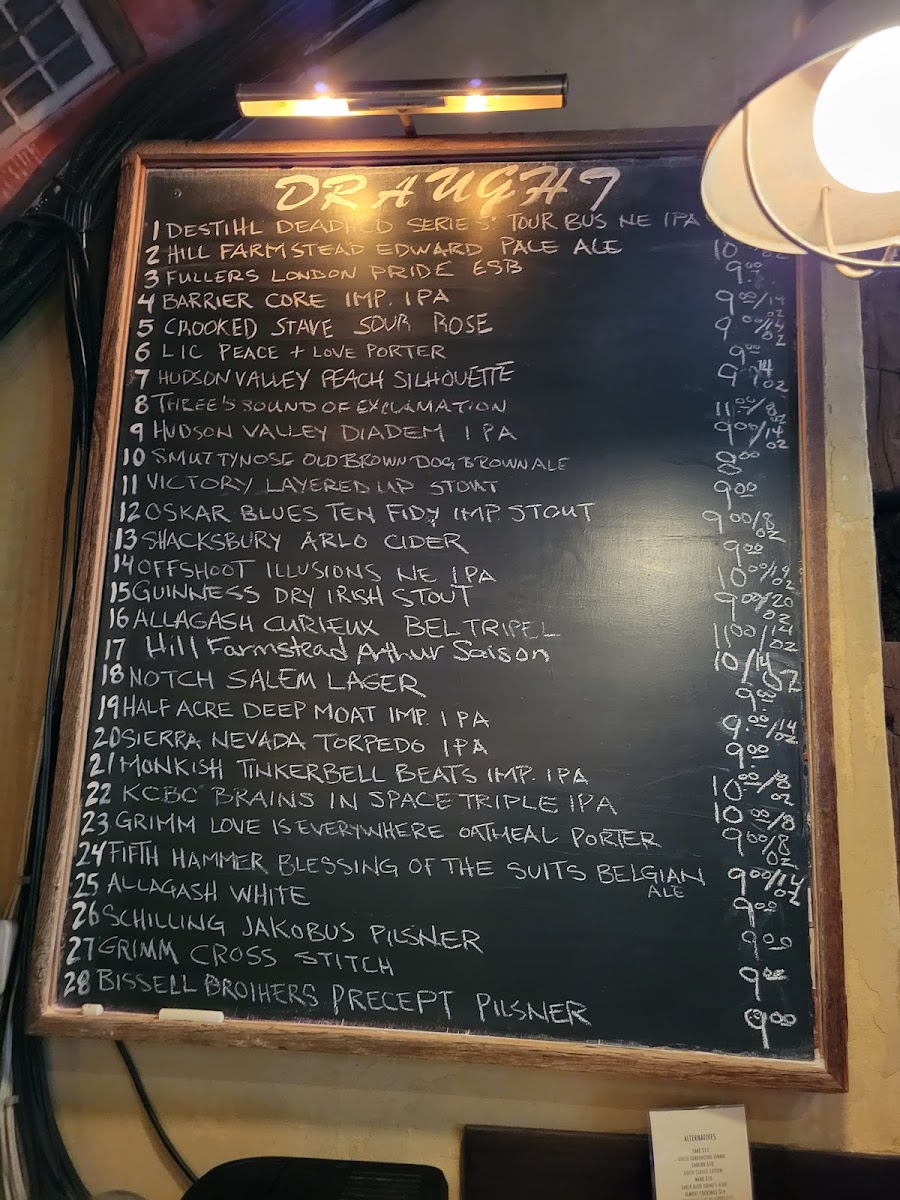 DRAUGHT
1 DESTIHL DEADHEAD SERIES: TOUR BUS NE IPA
2 HILL FARMSTEAD EDWARD PALE ALE 10
3 FULLERS LONDON PRIDE ESB 9.00
4 BARRIER CORE IMP. IPA 9.00/14 OZ
5 CROOKED STAVE SOUR ROSE 9.00/14 OZ
6 LIC PEACE + LOVE PORTER 9.00
7 HUDSON VALLEY PEACH SILHOUETTE 9/14 OZ
8 THREE'S SOUND OF EXCLAMATION 11.00/8 OZ
9 HUDSON VALLEY DIADEM IPA 9.00/14 OZ
10 SMUTTYNOSE OLD BROWN DOG BROWN ALE 8.00
11 VICTORY LAYERED UP STOUT 9.00
12 OSKAR BLUES TEN FIDY IMP. STOUT 9.00/8 OZ
13 SHACKSBURY ARLO CIDER 9.00
14 OFFSHOOT ILLUSIONS NE IPA 10.00/14 OZ
15 GUINNESS DRY IRISH STOUT 9.00/20 OZ
16 ALLAGASH CURIEUX BEL TRIPEL 11.00/14 OZ
17 Hill Farmstead Arthur Saison 10/14 OZ
18 NOTCH SALEM LAGER 9.00
19 HALF ACRE DEEP MOAT IMP. IPA 9.00/14 OZ
20 SIERRA NEVADA TORPEDO IPA 9.00
21 MONKISH TINKERBELL BEATS IMP. IPA 10.00/8 OZ
22 KCBC BRAINS IN SPACE TRIPLE IPA 10.00/8
23 GRIMM LOVE IS EVERYWHERE OATMEAL PORTER 9.00/8 OZ
24 FIFTH HAMMER BLESSING OF THE SUITS BELGIAN 9.00/14 OZ
ALE
25 ALLAGASH WHITE 9.00
26 SCHILLING JAKOBUS PILSNER 9.00
27 GRIMM CROSS STITCH 9.00
28 BISSELL BROTHERS PRECEPT PILSNER 9.00
ALTERNATIVES